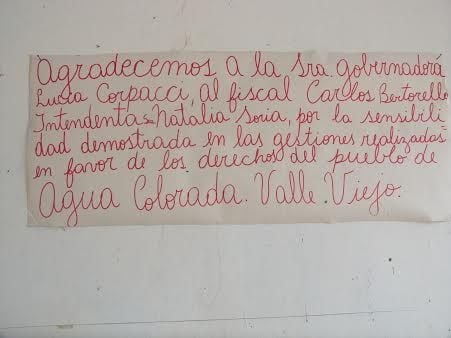 Agradecemos a la Sra. gobernadora
Lucía Corpacci, al fiscal Carlos Bertorello
Intendenta = Natalia Soria, por la sensibili
dad demostrada en las gestiones realizadas
en favor de los derechos del pueblo de
Agua Colorada. Valle Viejo.